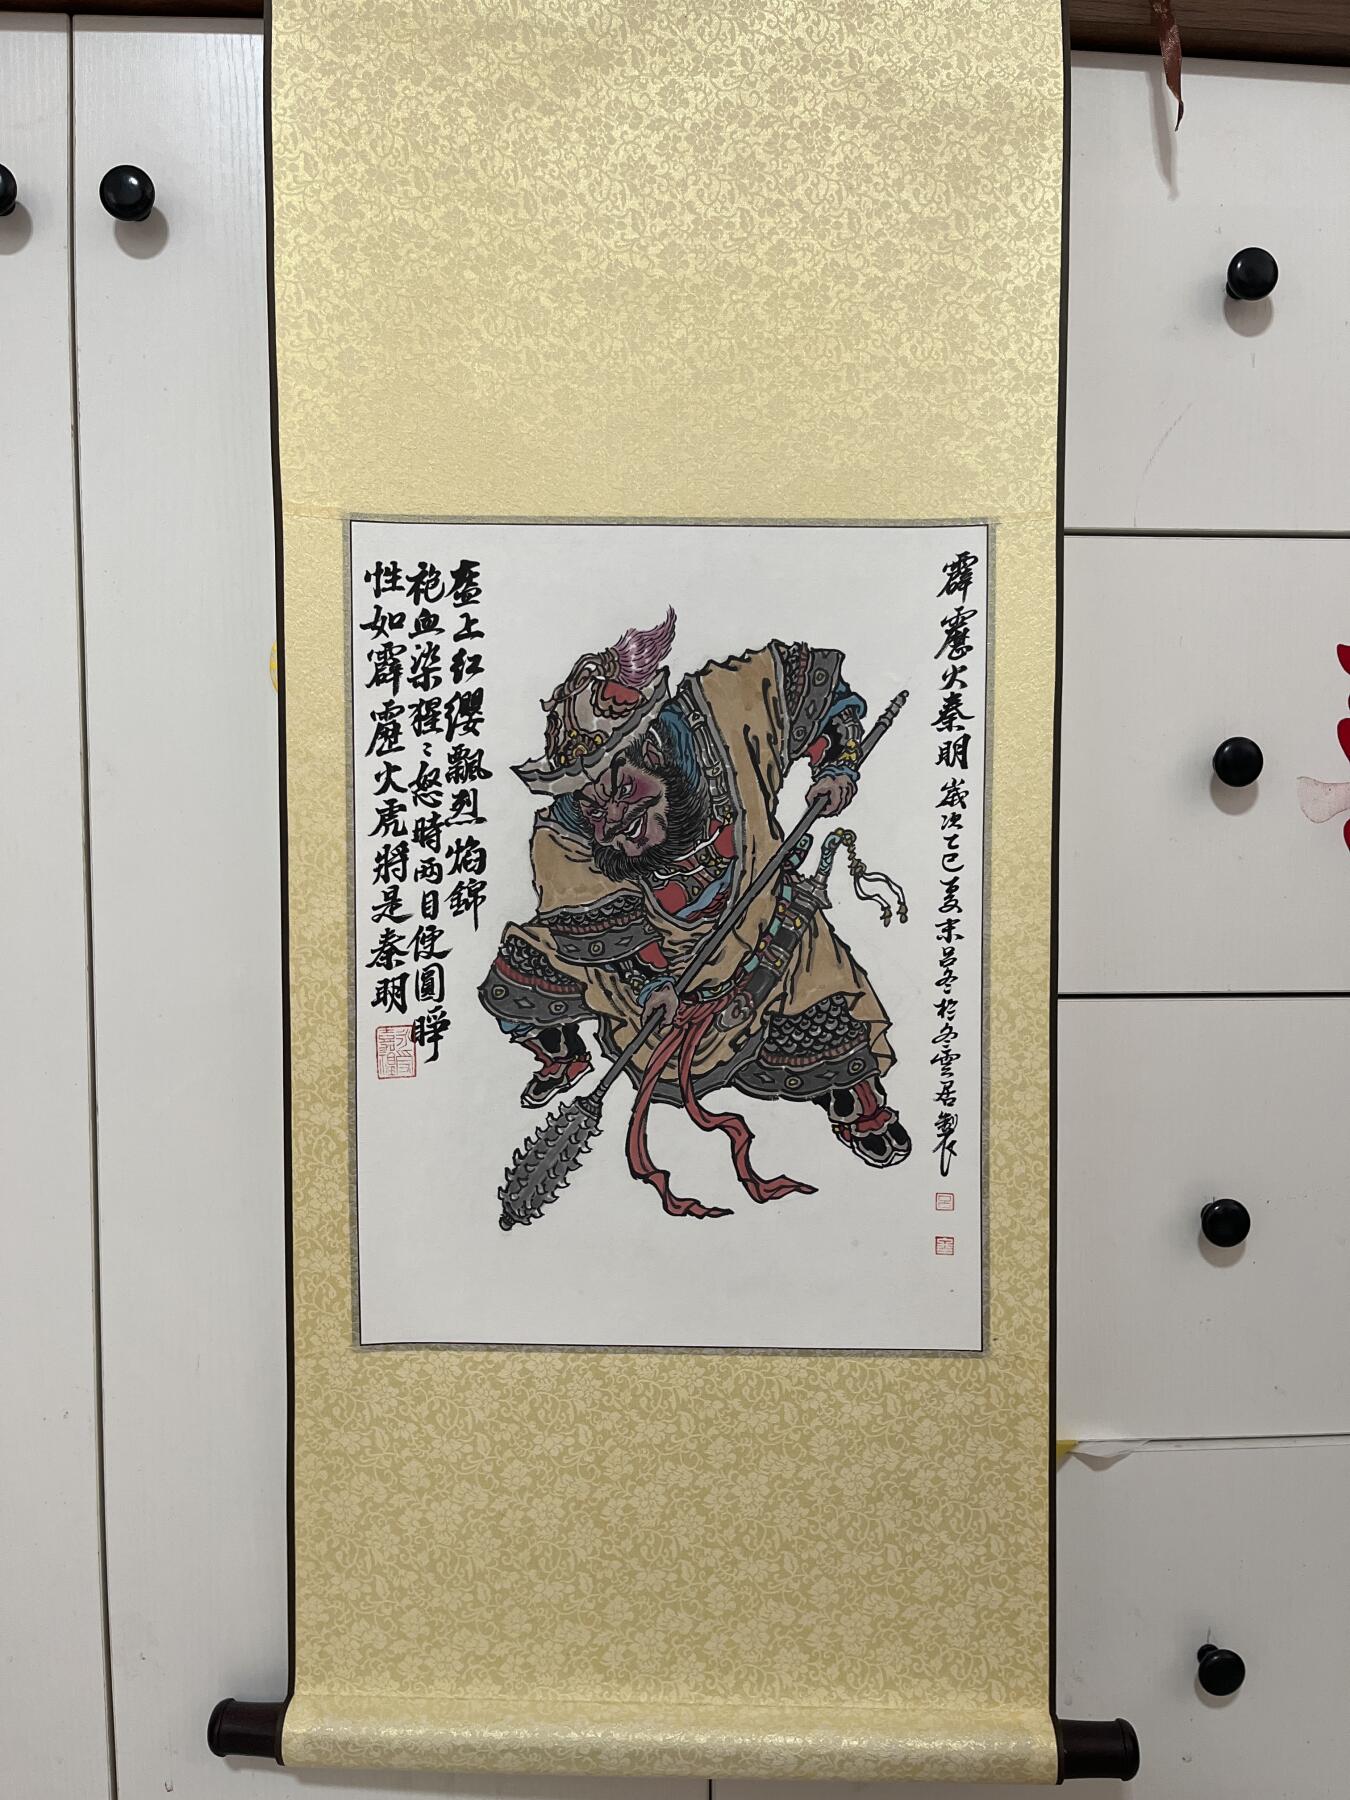 霹靂火秦明 歲次乙巳夏末呂冬於冬雲居製
盔上红缨飄烈焰錦
袍血染猩〻怒時兩目便圓睜
性如霹靂火虎將是秦明